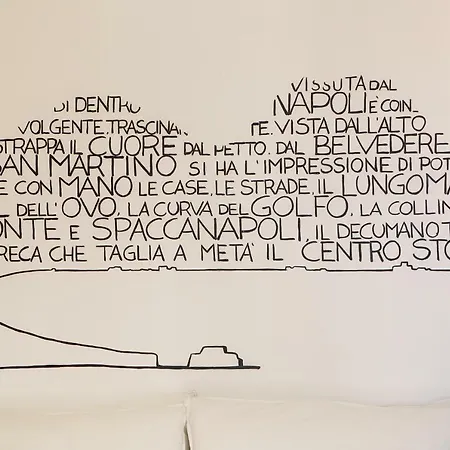 VISSUTA DAL
DI DENTRO NAPOLI È COIN
VOLGENTE, TRASCINAN TE. VISTA DALL'ALTO
STRAPPA IL CUORE DAL PETTO. DAL BELVEDERE
SAN MARTINO SI HA L'IMPRESSIONE DI POT
E CON MANO LE CASE, LE STRADE, IL LUNGOMA
L DELL'OVO, LA CURVA DEL GOLFO, LA COLLIN
ONTE E SPACCANAPOLI, IL DECUMANO T
RECA CHE TAGLIA A METÀ IL CENTRO STO